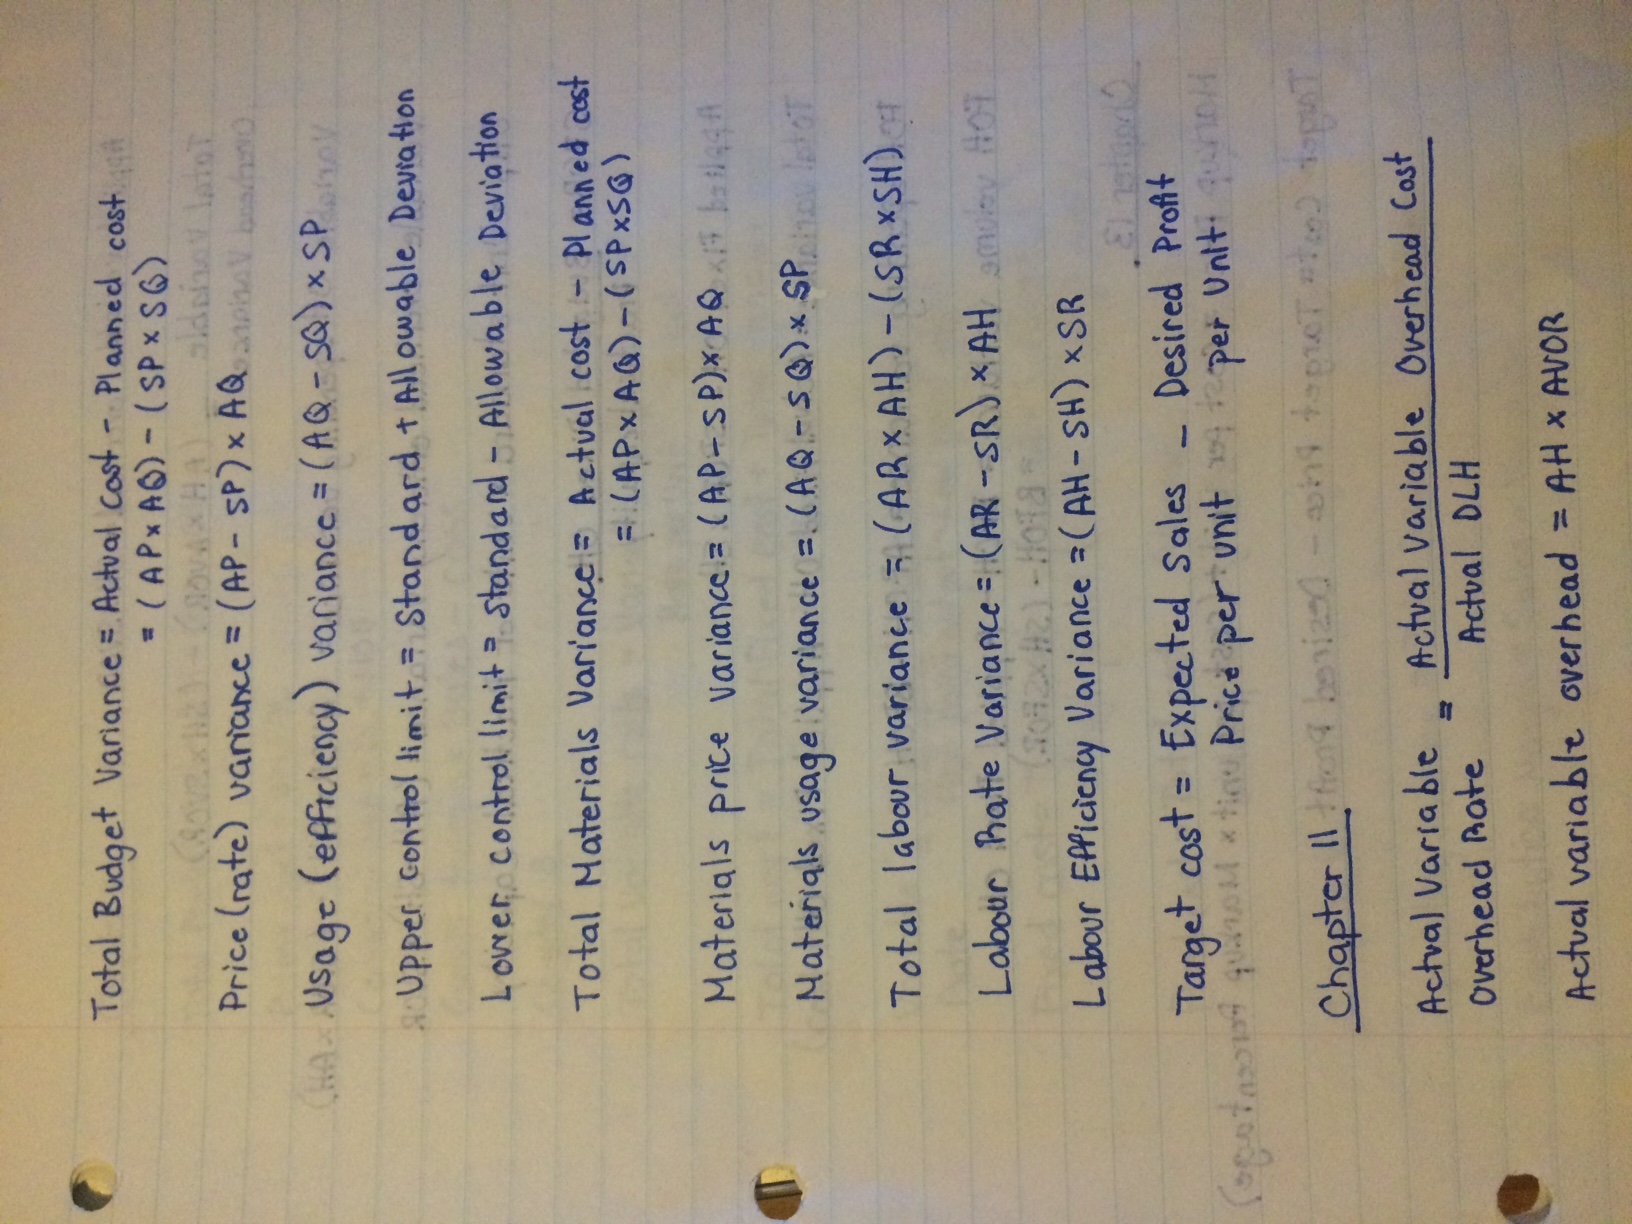 Total Budget Variance = Actual Cost - Planned cost
= (AP x AQ) - (SP x SQ)
Price (rate) variance = (AP - SP) x AQ
Usage (efficiency) variance = (AQ - SQ) x SP
Upper control limit = Standard + Allowable Deviation
Lower control limit = Standard - Allowable Deviation
Total Materials Variance = Actual cost - Planned cost
= (AP x AQ) - (SP x SQ)
Materials price variance = (AP - SP) x AQ
Materials usage variance = (AQ - SQ) x SP
Total labour variance = (AR x AH) - (SR x SH)
Labour Rate Variance = (AR - SR) x AH
Labour Efficiency Variance = (AH - SH) x SR
Target cost = Expected Sales - Desired Profit
Price per unit per Unit
Chapter 11
Actual Variable = Actual Variable Overhead Cost
Overhead Rate Actual DLH
Actual variable overhead = AH x AVOR